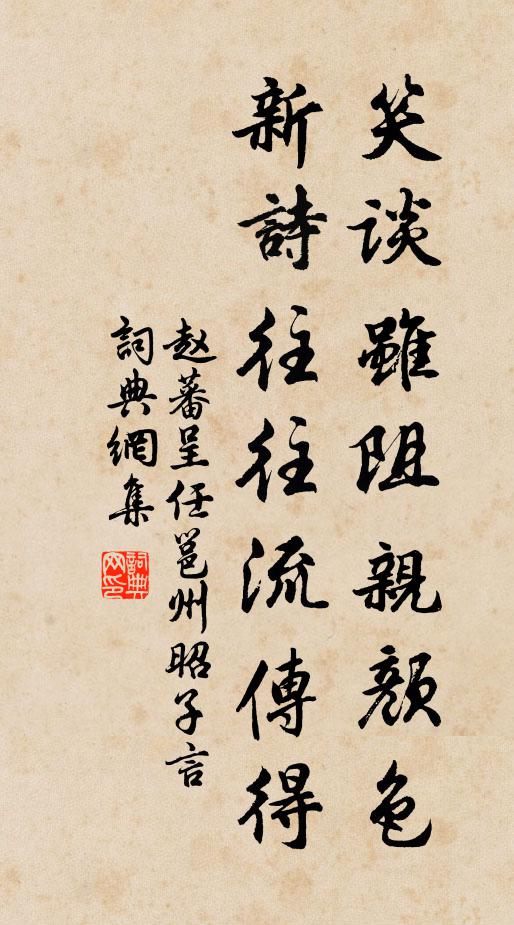 笑谈雖阻親顔色
新詩往往流傳得
赵蕃呈任邕州昭子言
詞典網集
詞典网印